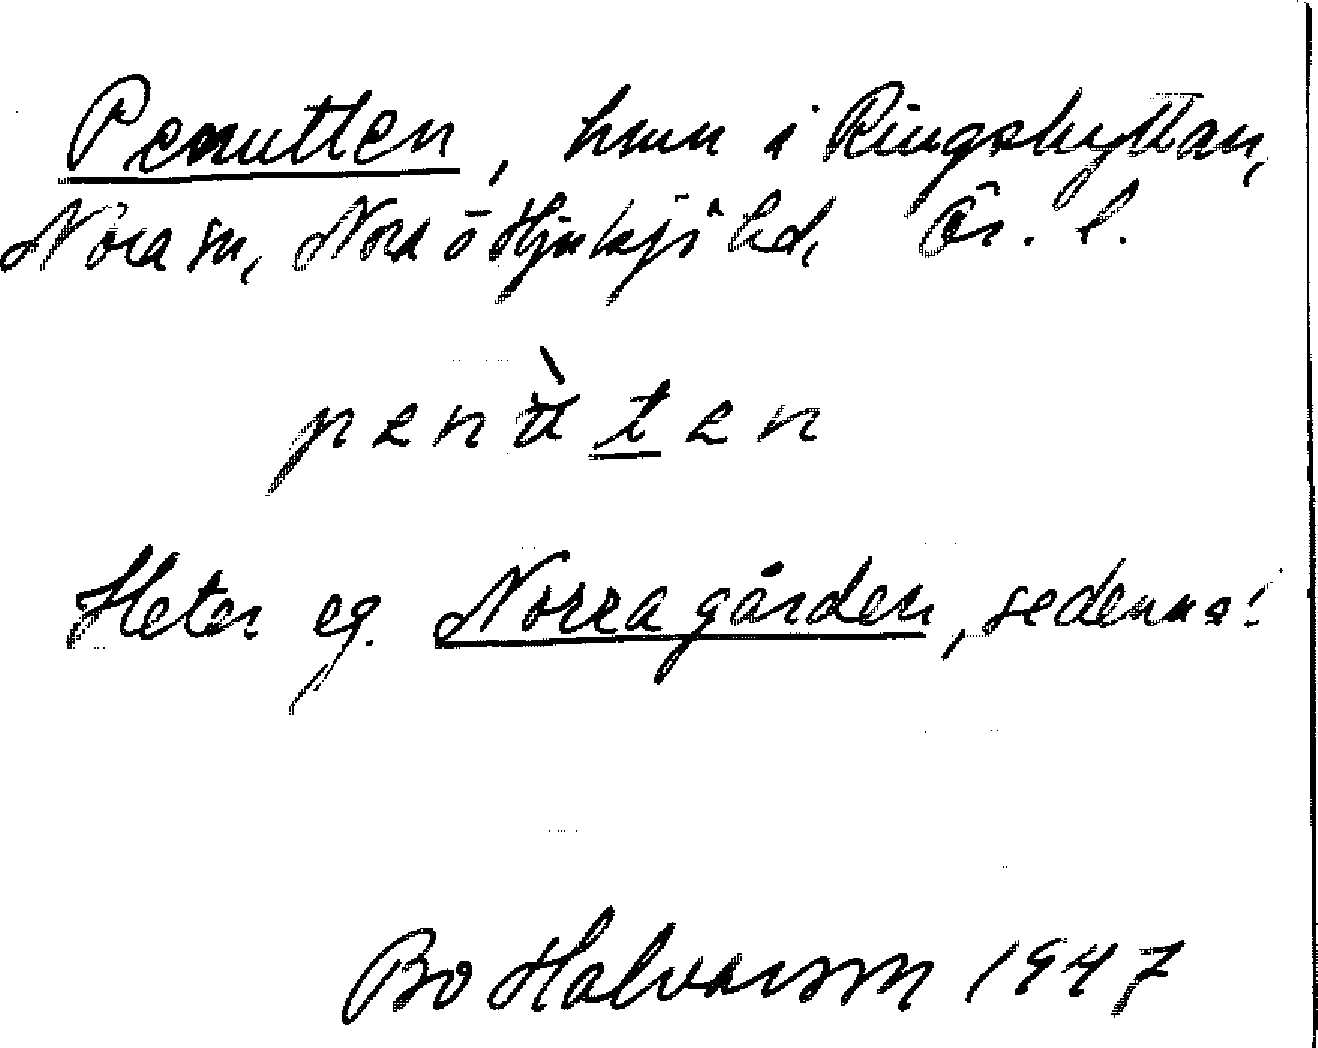 Penutten, hmn i Ringshyttan,
Nora sn, Nora o Hjulsjö hd, Ör. l.
penùten
Heter eg. Norra gården, sedermera:
Bo Halvarson 1947